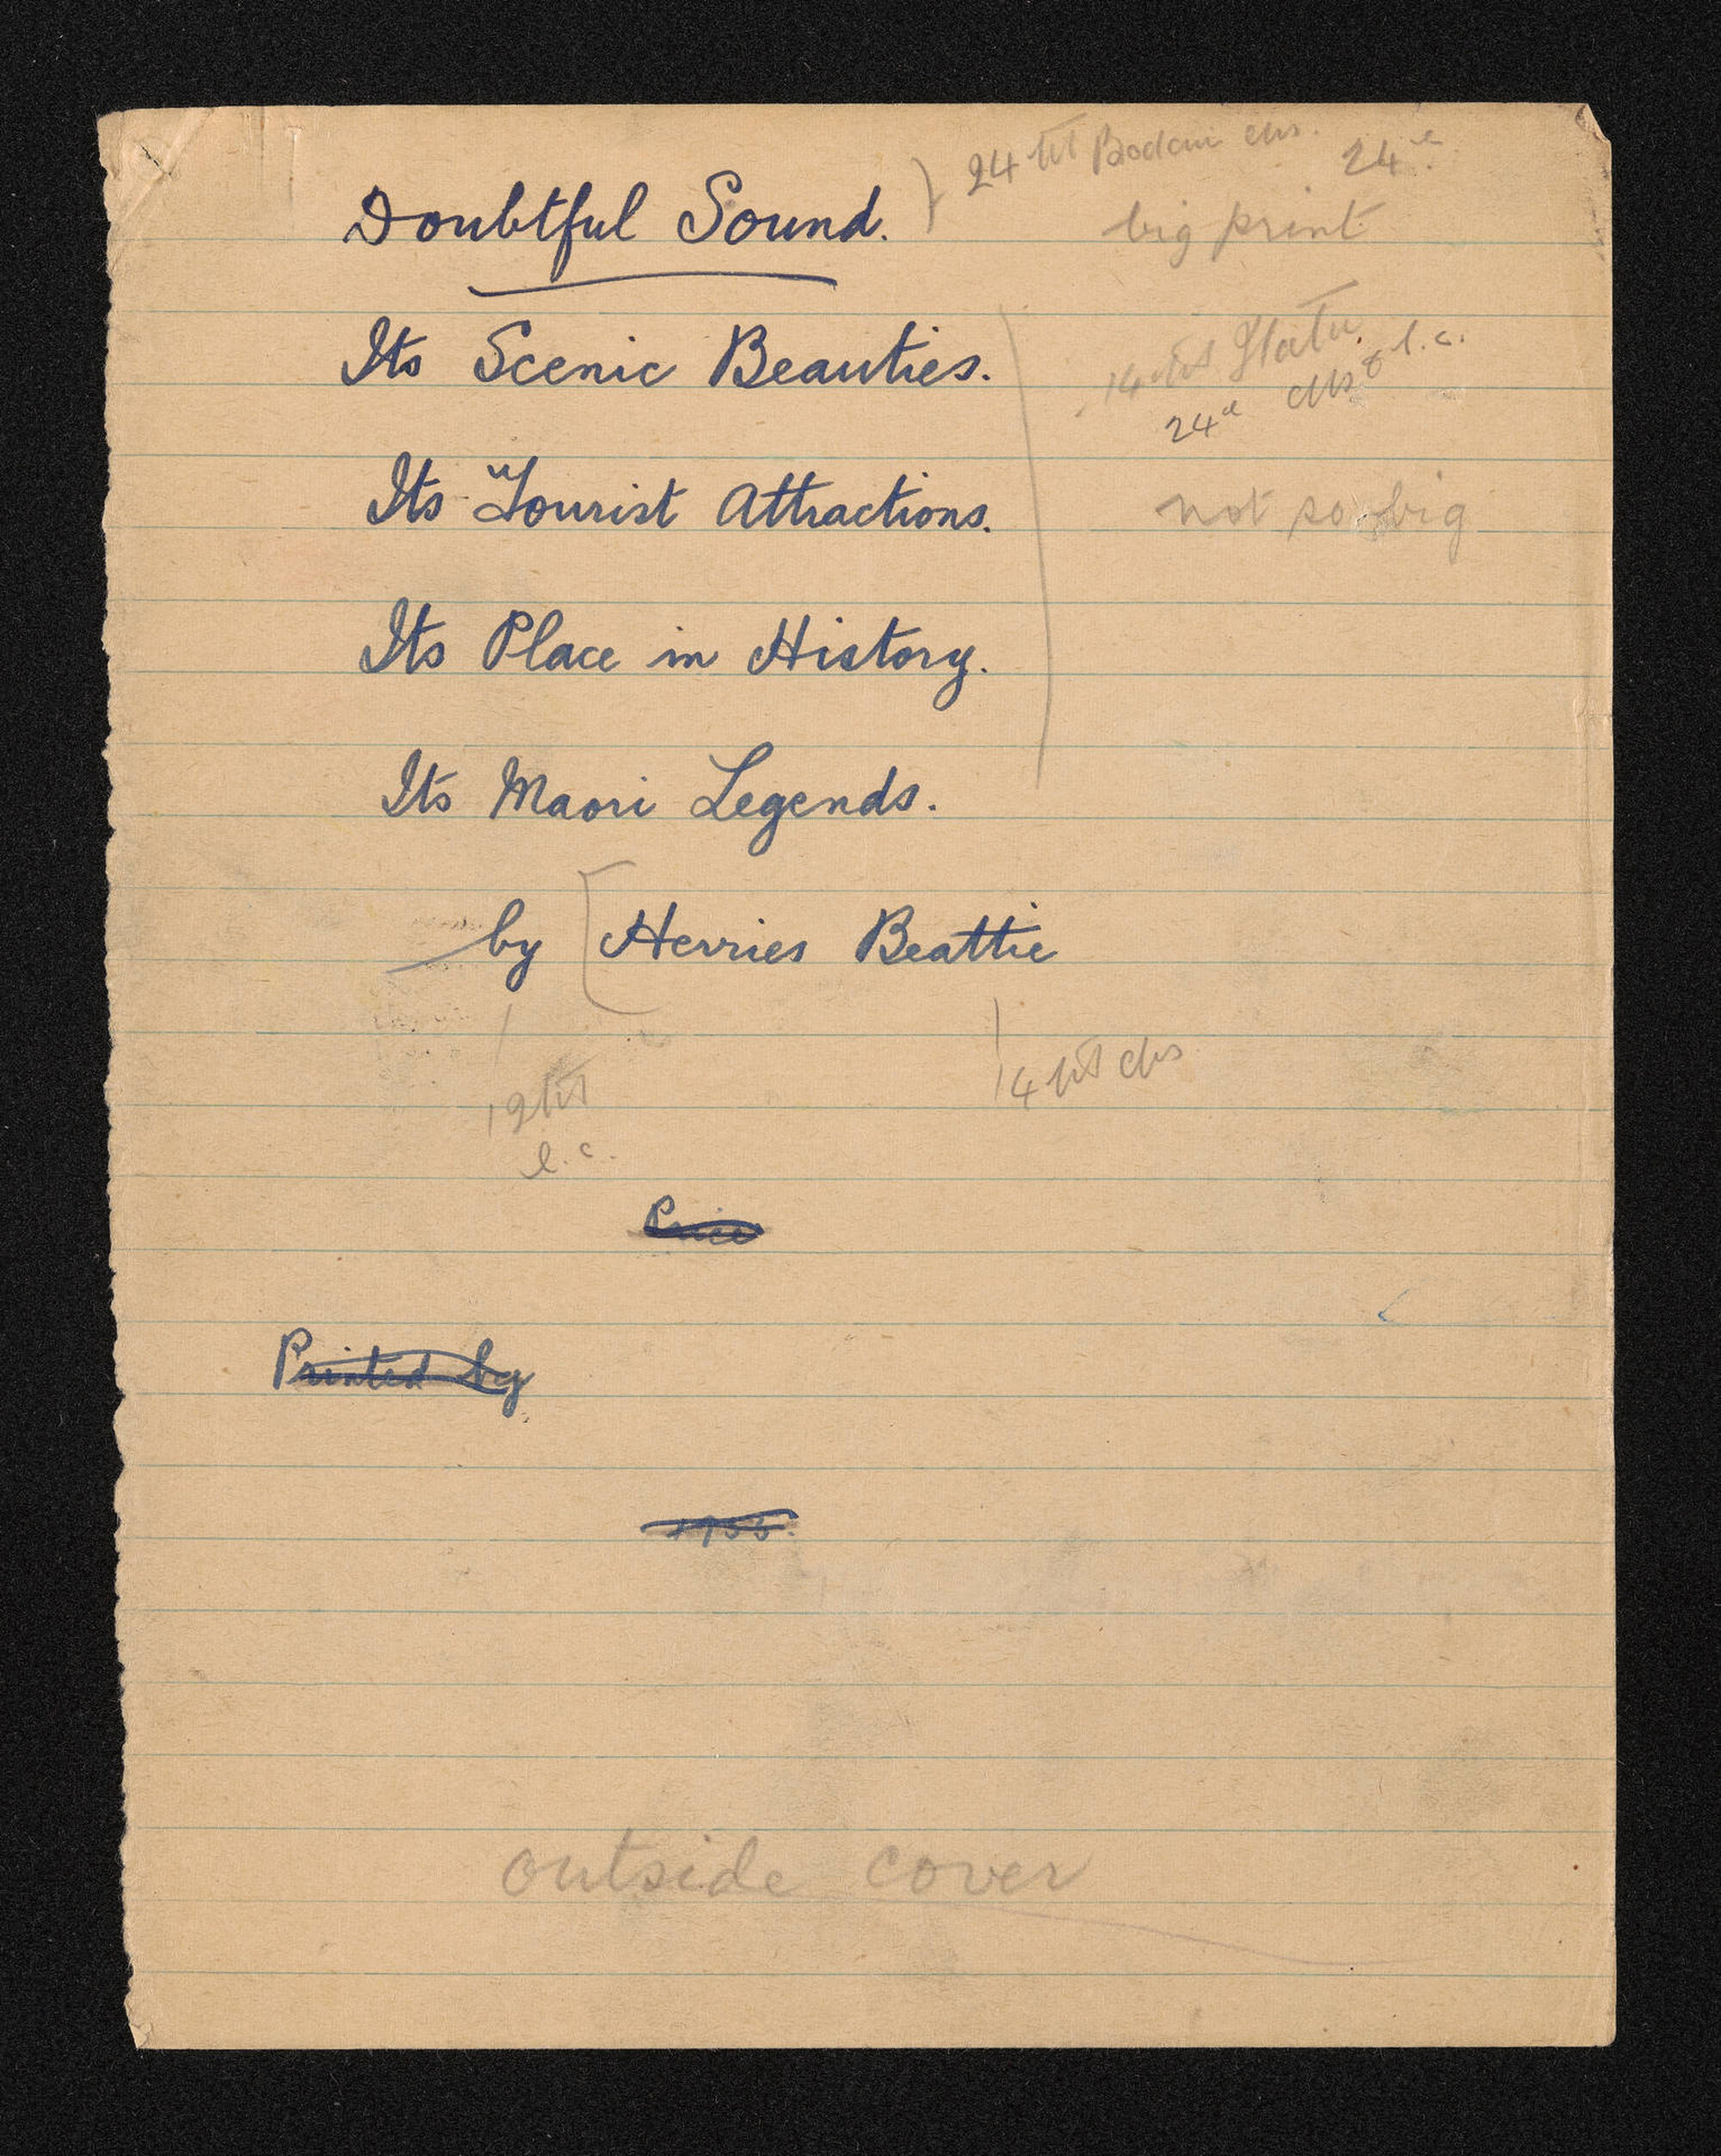 Doubtful Sound. } 24 pt Bodoni caps. 24 e
big print
Its Scenic Beauties.
14 pts
24 e caps & l.c.
Its Tourist Attractions. not so big
Its Place in History.
Its Maori Legends.
by [Herries Beattie
12 pt
l.c.
14 pt caps
Price
Printed by
outside cover